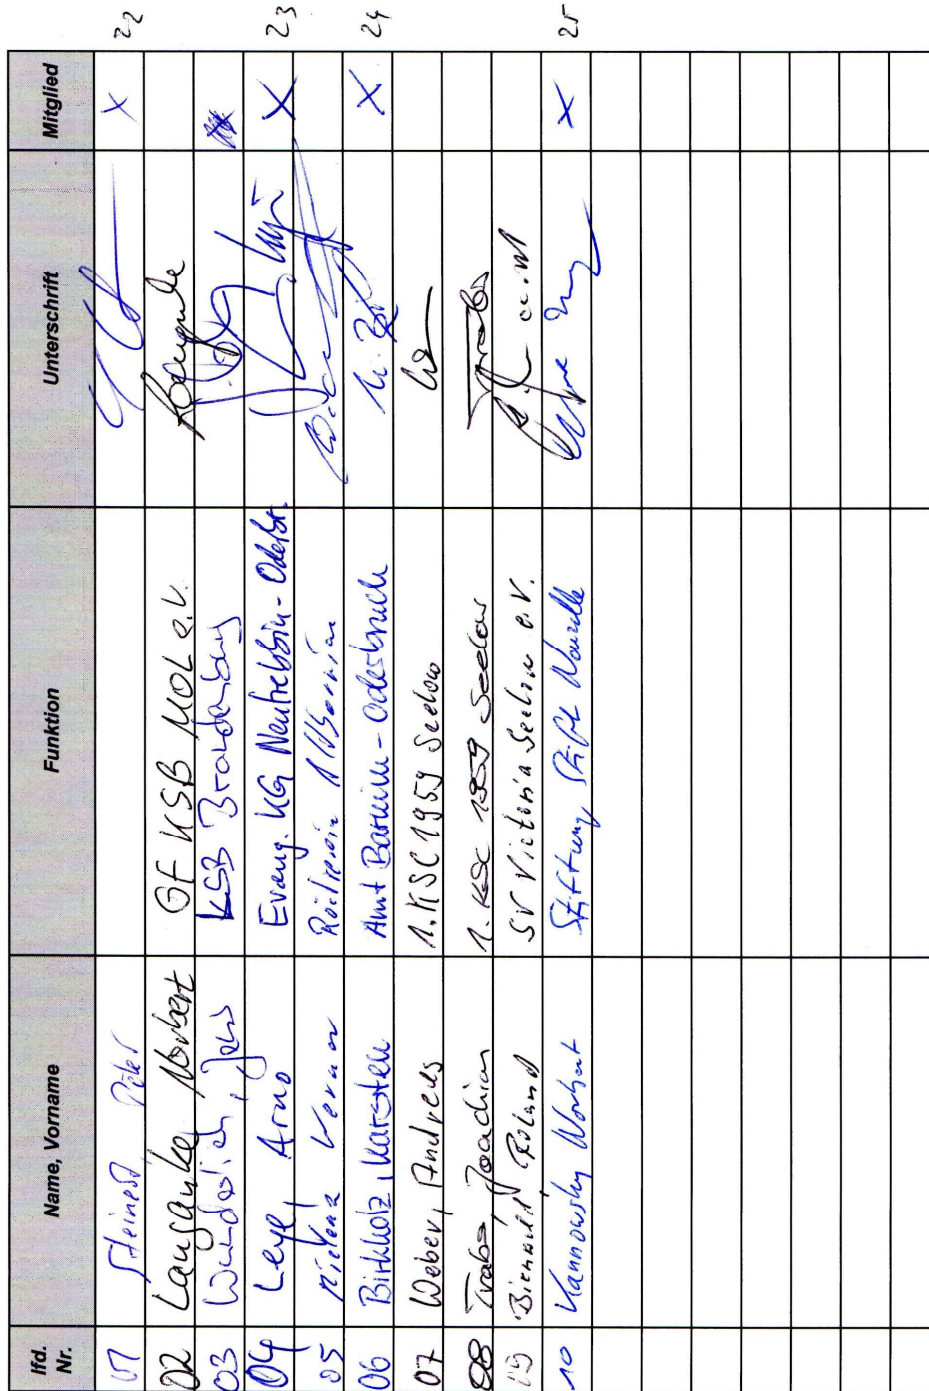 lfd. Nr. Name, Vorname Funktion Unterschrift Mitglied
01 Steinest, Peter X 22
02 Langanke, Norbert GF KSB MOL e.V.
03 Wunderlich, Jens KSB Brandenburg
04 Leye, Arno Evang. KG Neutrebbin-Oderbr. X 23
05 Werner
06 Birkholz, Karsten Amt Barnim-Oderbruch X 24
07 Weber, Andreas 1. KSC 1959 Seelow
08 Trabs, Joachim 1. KSC 1959 Seelow
09 Bienwald, Roland SV Victoria Seelow e.V.
10 Kannowsky Norbert Stiftung Stift Neuzelle X 25